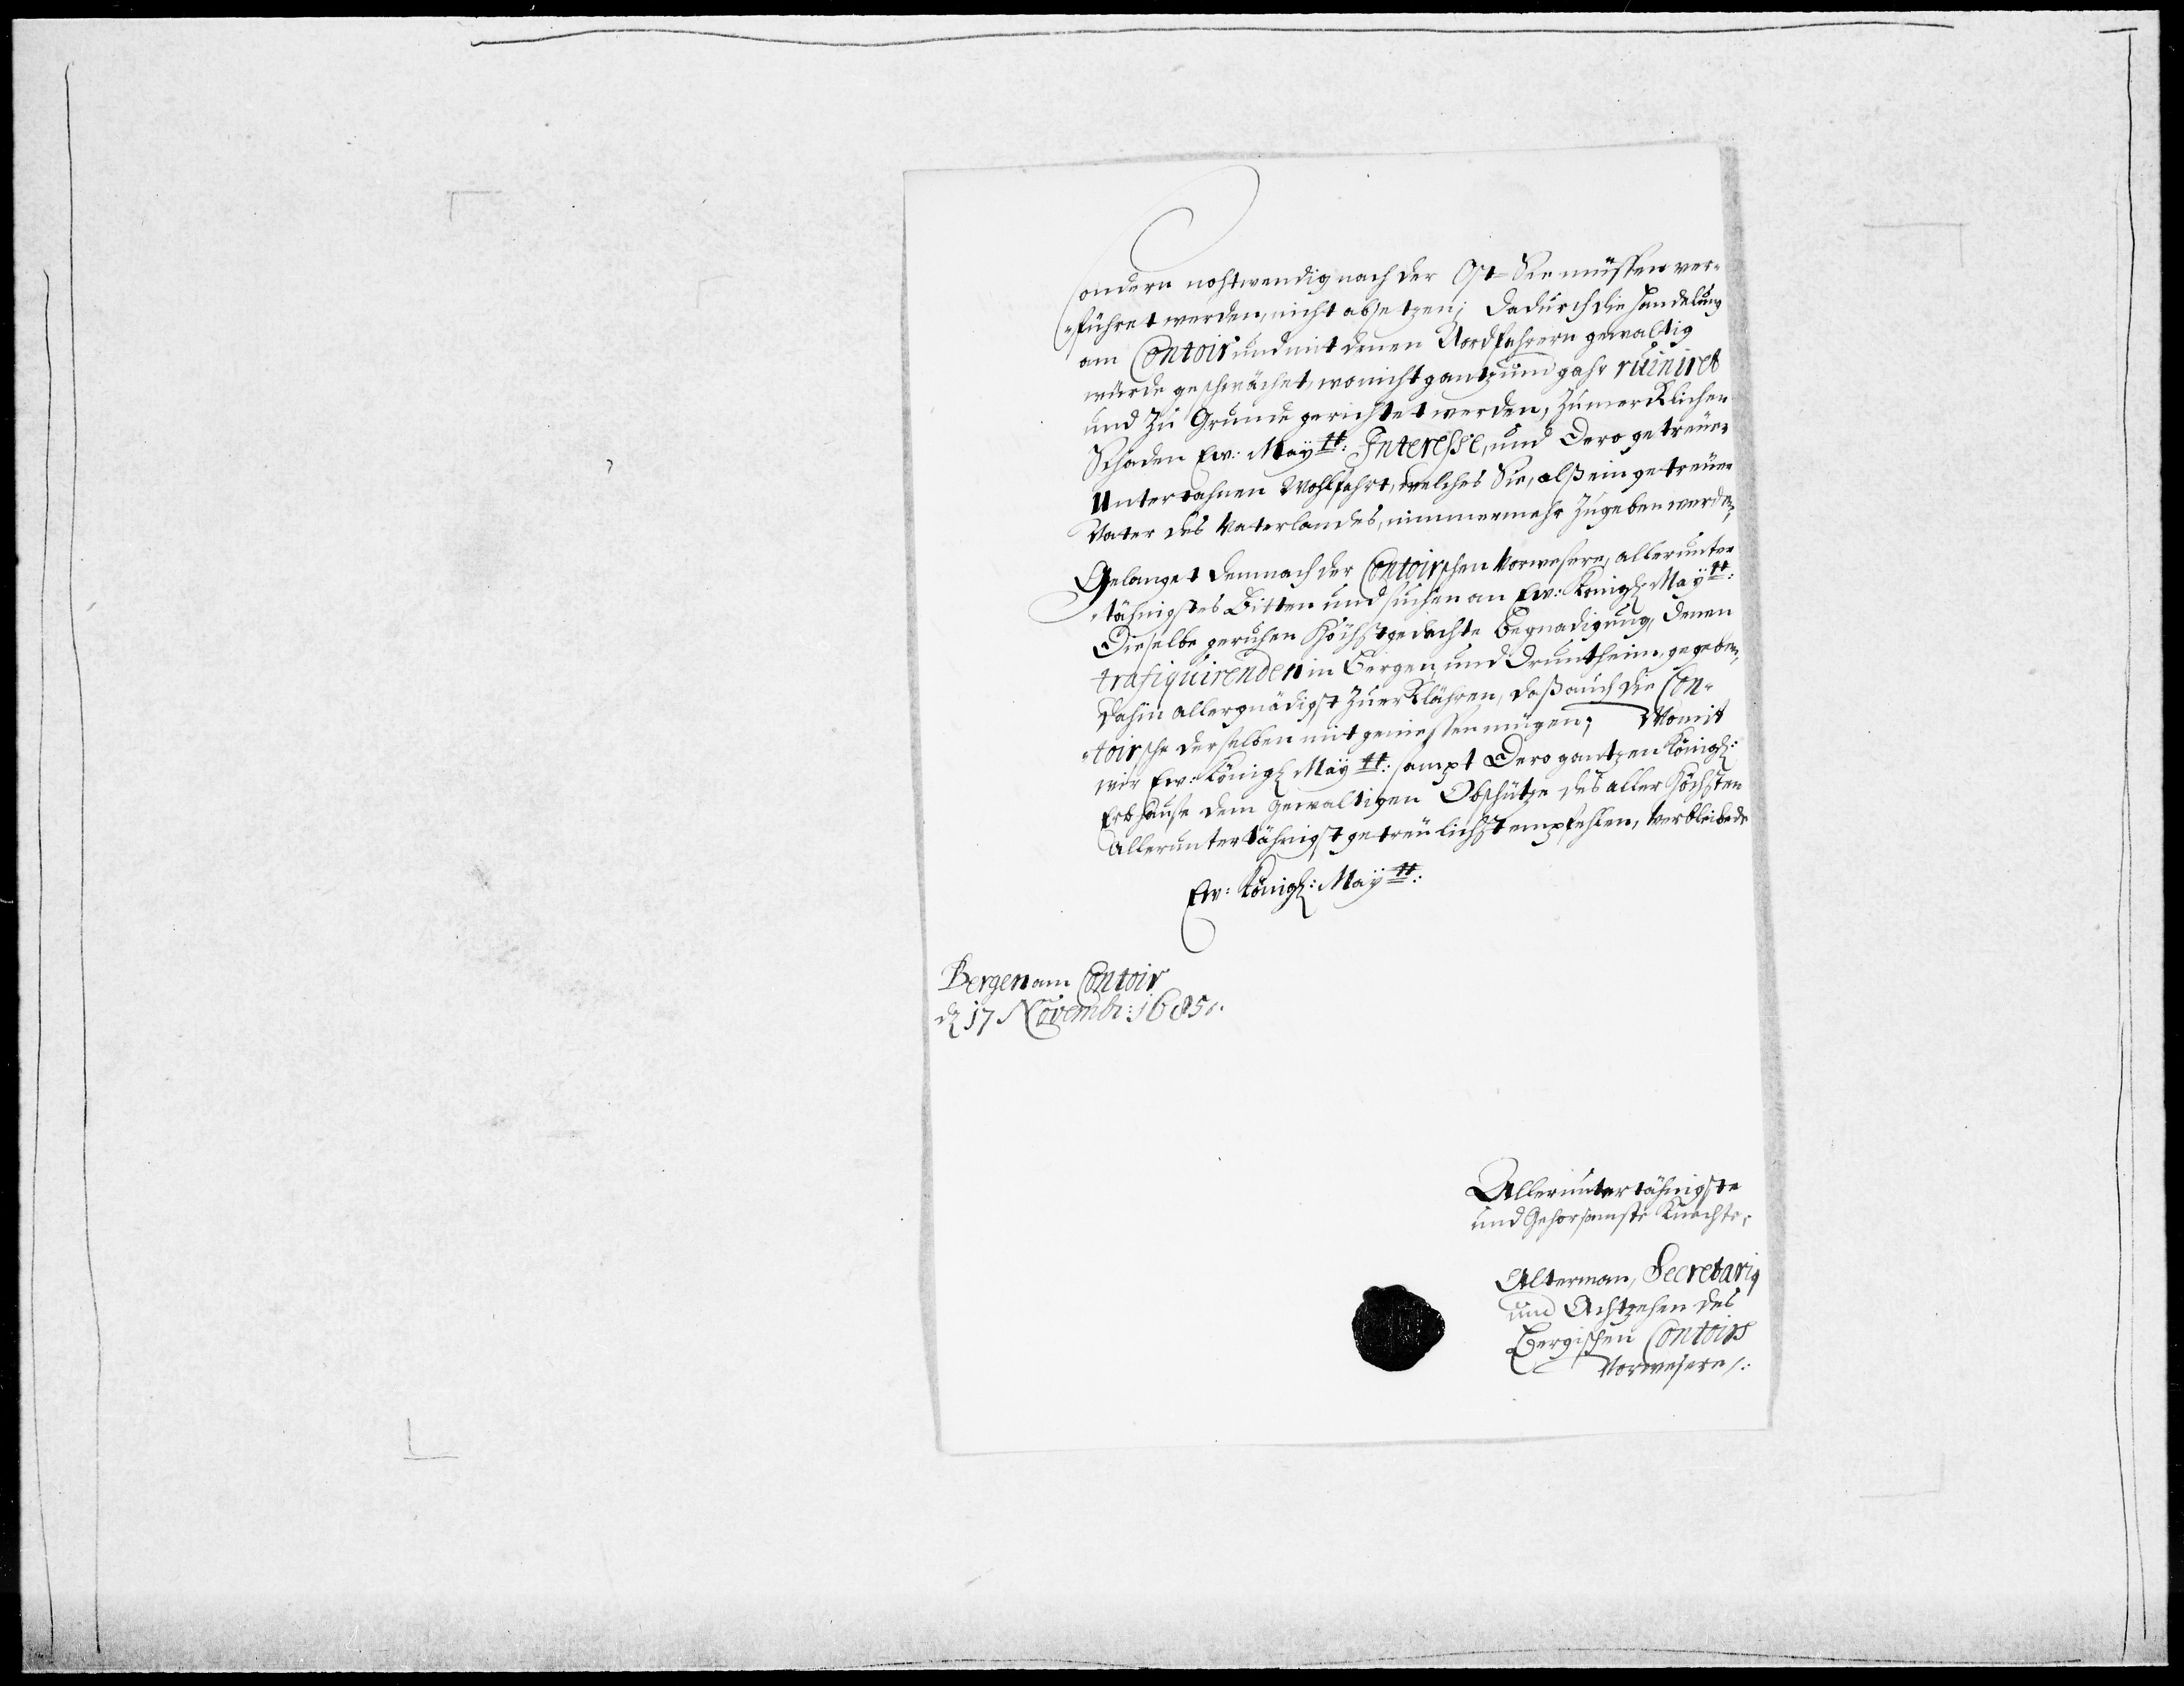 Sondern nohtwendig nach der Ost-See müssen ver-
-führet werden, nicht absetzen; dadurch die Handelung
am Contoir und mit denen Nordfahrern gewaltig
würde geschwächet, wo nicht gantz und gahr ruiniret
und zu Grunde gerichtet werden, zu mercklichen
Schaden Ew: Maytt: Interesse, und Dero getreuen
Untertahnen Wohlfahrt, welches Sie, alß ein getreuer
Vater des Vaterlandes, nimmermehr zugeben werden,
Gelanget demnach der Contoirschen Vorwesere, allerunter
-tähnigstes Bitten und suchen an Ew: Königl Maÿtt:
Dieselbe geruhen Höchstgedachte Begnadigung, denen
trafiquirenden in Bergen und Druntheim, gegeben,
dahin allergnädigst zu erklähren, daß auch die Con-
-toirsche derselben mit geniessen mügen; Womit
wir Ew: Königl Maÿtt: sampt Dero gantzen Königl:
Erbhause dem gewaltigen Obschutze des aller Höchsten
Alleruntertähnigst getreulichst empfehlen, verbleibede
Ew: Königl: Maÿtt:
Bergen am Contoir
d 17 Novembr: 1685.
Alleruntertähnigste
und Gehorsamste Knechte,
Alterman, Secretarig
und Achtzehen des
Bergischen Contoirs
Vorwesere /: